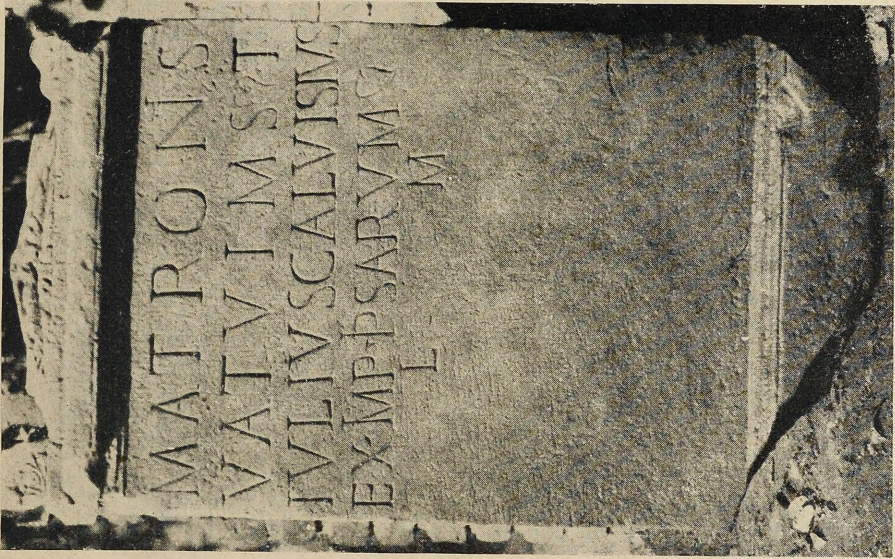 MATRONS
VATVIMS T
IVLIVSCALVISIVS
EX·IMP·PSARVM S
L M